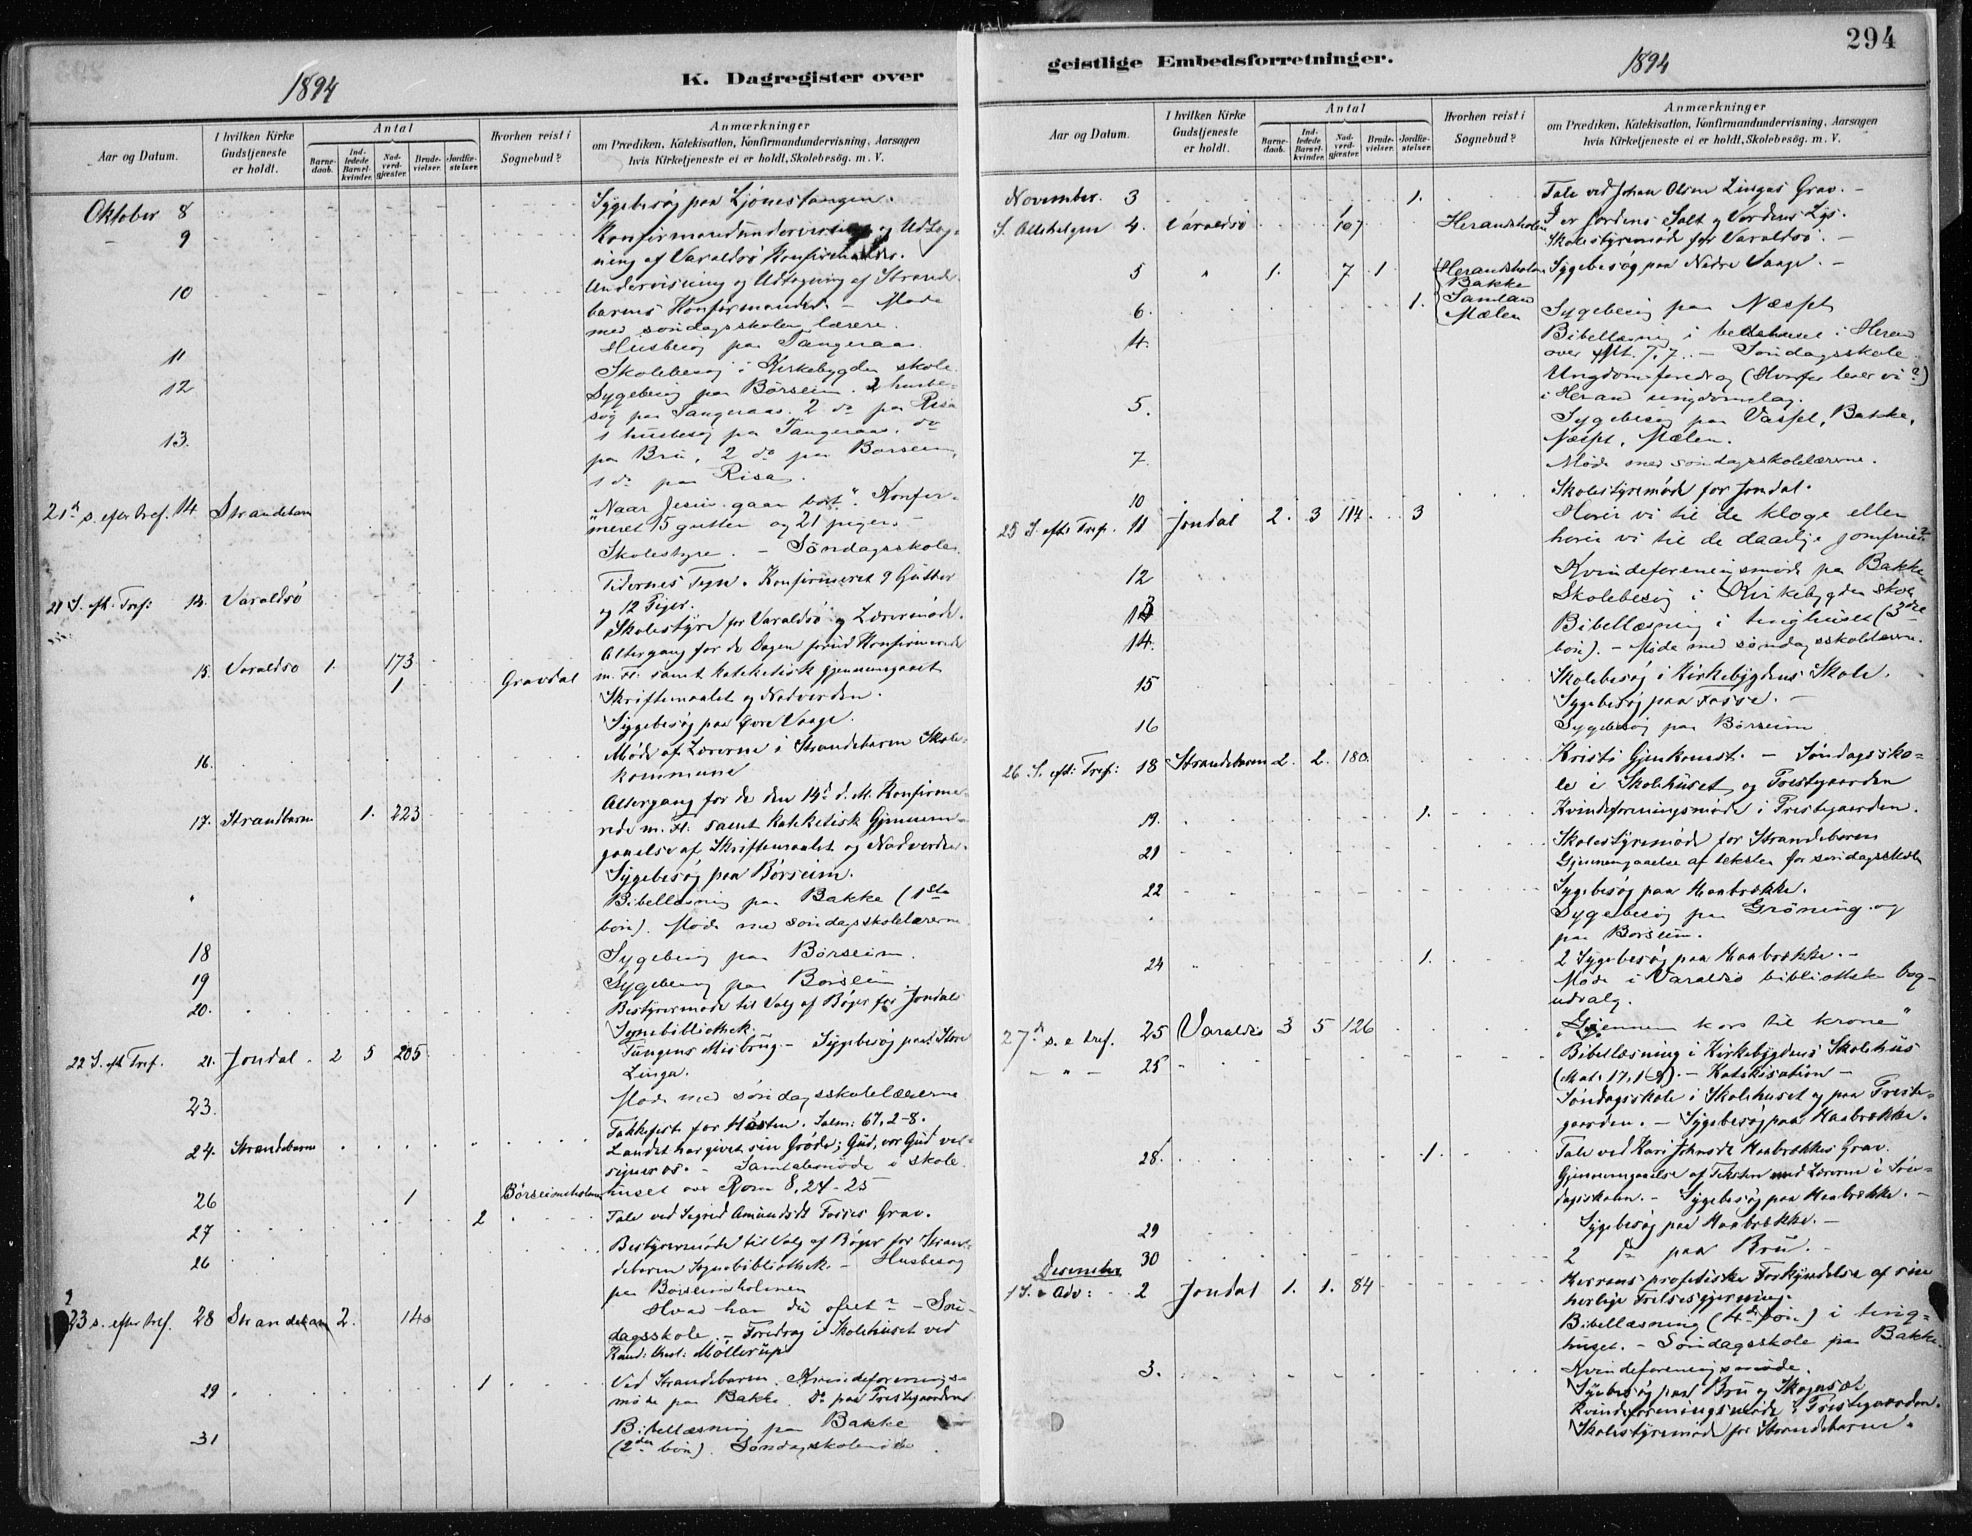 294
1894
K. Dagregister over
Aar og Datum.
I hvilken Kirke Gudstjeneste er holdt.
Antal
Barne-daab.
Ind-ledede Barsel-kvinder.
Nad-verd-gjæster.
Brude-vielser.
Jordfæ-stelser.
Hvorhen reist i Sognebud?
Anmærkninger
om Prædiken, Katekisation, Konfirmandundervisning, Aarsagen
hvis Kirketjeneste ei er holdt, Skolebesøg. m. V.
Oktober 8 Sygebesøg paa Ljonestangen.
9 Konfirmandundervisning og Udtag-
ning af Varaldsö Konfirmander.
10 Undervisning og Udtagning af Strande-
barms Konfirmander. – Møde
med søndagsskolens lærere.
11 Husbesøg paa Tangeraas.
Skolebesøg i Kirkebygdens skole.
12 Sygebesøg paa Börseim. 2 husbe-
søg paa Tangeraas. 2 do paa Risa
13. 1 husbesøg paa Tangeraas. do
paa Bru, 2 do paa Børseim,
1 do paa Risa.
21de s. efter tref. 14 Strandebarm "Naar Jesus gaar bort." Konfir-
meret 15 gutter og 21 piger. –
Skolestyre. – Søndagsskole.
21 S. eft. Tref: Varaldsö Tidernes Tegn. Konfirmeret 9 Gutter
og 12 Piger.
Skolestyre for Varaldsö og Lærermöde.
15. Varaldsö 1. 173 Altergang for de Dagen forud Konfirmerede
1 Gravdal m. Fl. samt katekätisk gjennemgaaet
Skriftemaalet og Nadverden.
Sygebesøg paa Övre Vaage.
16. Møde af Lærerne i Strandebarm Skole-
kommune
17. Strandbarm 1. 223 Altergang for de den 14de d. M. Konfirme-
rede m. Fl. samt katektisk Gjennem-
gaaelse af Skriftemaalet og Nadverden.
Sygebesøg paa Börseim.
" Bibellæsning paa Bakke (1ste
bön). Møde med söndagsskolelærerne
18 Sygebesøg paa Börseim.
19 Sygebesøg paa Börseim.
20. Bestyrermøde til Valg af Bøger for Jondals
Sognebibliothek.
22 S. eft Tref. 21. Jondal. 2 5 205 Tungens Misbrug – Sygebesøg paa Store
Linga.
23. Møde med søndagsskolelærerne
24. Strandebarm Takkefest for Høsten. Salm: 67, 2-8.
Landet har givet sin Gröde; Gud, vor Gud vel-
signer os. – Samtalemöde i skole-
26 1 Börseimsholmen huset over Rom 8, 24-25
27 2 Tale ved Sigrid Amundsdt Fosses Grav.
26 Bestyrermøde til Valg af Bøger for Stran-
debarm Sognebibliothek. – Husbesøg
paa Børseimsholmen
23 s. efter tref. 28 Strandebarm 2. 140 Hvad har du ofret? – Søn-
dagsskole. – Foredrag i Skolehuset ved
Kand: Møllerup
29 1 Ved Strandebarm. Kvindeforenings-
møde paa Bakke. Do paa Prestegaarden
31 Bibellæsning paa Bakke
(2den bön). Søndagsskolemöde
geistlige Embedsforretninger.
1894
Aar og Datum.
I hvilken Kirke Gudstjeneste er holdt.
Antal
Barne-daab.
Ind-ledede Barsel-kvinder.
Nad-verd-gjæster.
Brude-vielser.
Jordfæ-stelser.
Hvorhen reist i Sognebud?
Anmærkninger
om Prædiken, Katekisation, Konfirmandundervisning, Aarsagen
hvis Kirketjeneste ei er holdt, Skolebesøg. m. V.
November 3 1. Tale ved Johan Olsen Lingas Grav. –
S. Allehelgen 4. Varaldsö 107 Herandsholmen I er Jordens Salt og Verdens Lys.
Skolestyremøde for Varaldsö. –
5 " 1. 7 1 Herandsholmen Sygebesøg paa Nedre Vaage. –
Bakke
6. 1. Samland Sygebesøg paa Næsset
Mælen
4. Bibellæsning i bedehuset i Herand
over Mt. 7,7. – Søndagsskole.
Ungdomsforedrag (Hvorfor lever vi?)
5. i Herand ungdomslag.
Sygebesøg paa Vasset, Bakke,
Næsset, Mælen.
7. Møde med söndagsskolelærerne.
10 Skolestyremøde for Jondal.
25 S. eft. Tref. 11 Jondal 2. 3 114 3 Hører vi til de kloge eller
hører vi til de daarlige jomfruer?
12 Kvindeforeningsmøde paa Bakke
13 Skolebesøg i Kirkebygdens skole
14. Bibellæsning i tinghuset (3dje
bön). – Møde med søndagsskolelærerne.
15 Skolebesøg i Kirkebygdens Skole.
Sygebesøg paa Fosse. –
16 Sygebesøg paa Börseim
26 S. eft: Tref: 18 Strandebarm 2. 2. 180. Kristi Gjenkomst. – Søndagssko-
le i Skolehuset og Prestegaarden
19. 1. Kvindeforeningsmøde i Prestegaarden.
Skolestyremøde for Strandebarm
21 Gjennemgaaelse af teksten for søndagsskolen
22 Sygebesøg paa Haabrække.
Sygebesøg paa Gröning og
paa Börseim.
24 1. 2 Sygebesøg paa Haabrække. –
Møde i Varaldsö bibliotheks bog-
udvalg.
27de s. e tref. 25 Varaldsö 3 5 126 "Gjennem kors til krone"
– " – 25 Bibellæsning i Kirkebygdens Skolehus
(Mat. 17, 1-8). – Katekisation –
Søndagsskole i Skolehuset og paa Preste-
gaarden. – Sygebesøg paa Haabrække.
28. 1 Tale ved Kari Johnsdt Haabrækkes Grav.
Gjennemgaaelse af Teksten med Lærerne i Søn-
dagsskolen. – Sygebesøg paa Haabrække. –
29 Sygebesøg paa Haabrække. –
30 2 do paa Bru. –
Desember
1 S. i Adv: 2 Jondal 1. 1. 84 Herrens profetiske Forkyndelse af sin
herlige Frelsesgjerning.
Bibellæsning (4de bön) i ting-
huset. – Søndagsskole paa Bakke.
3. Kvindeforeningsmøde.
Sygebesøg paa Bru og Skogasæt.
Kvindeforeningsmøde i Prestegaarden.
Skolestyremøde for Strandebarm.